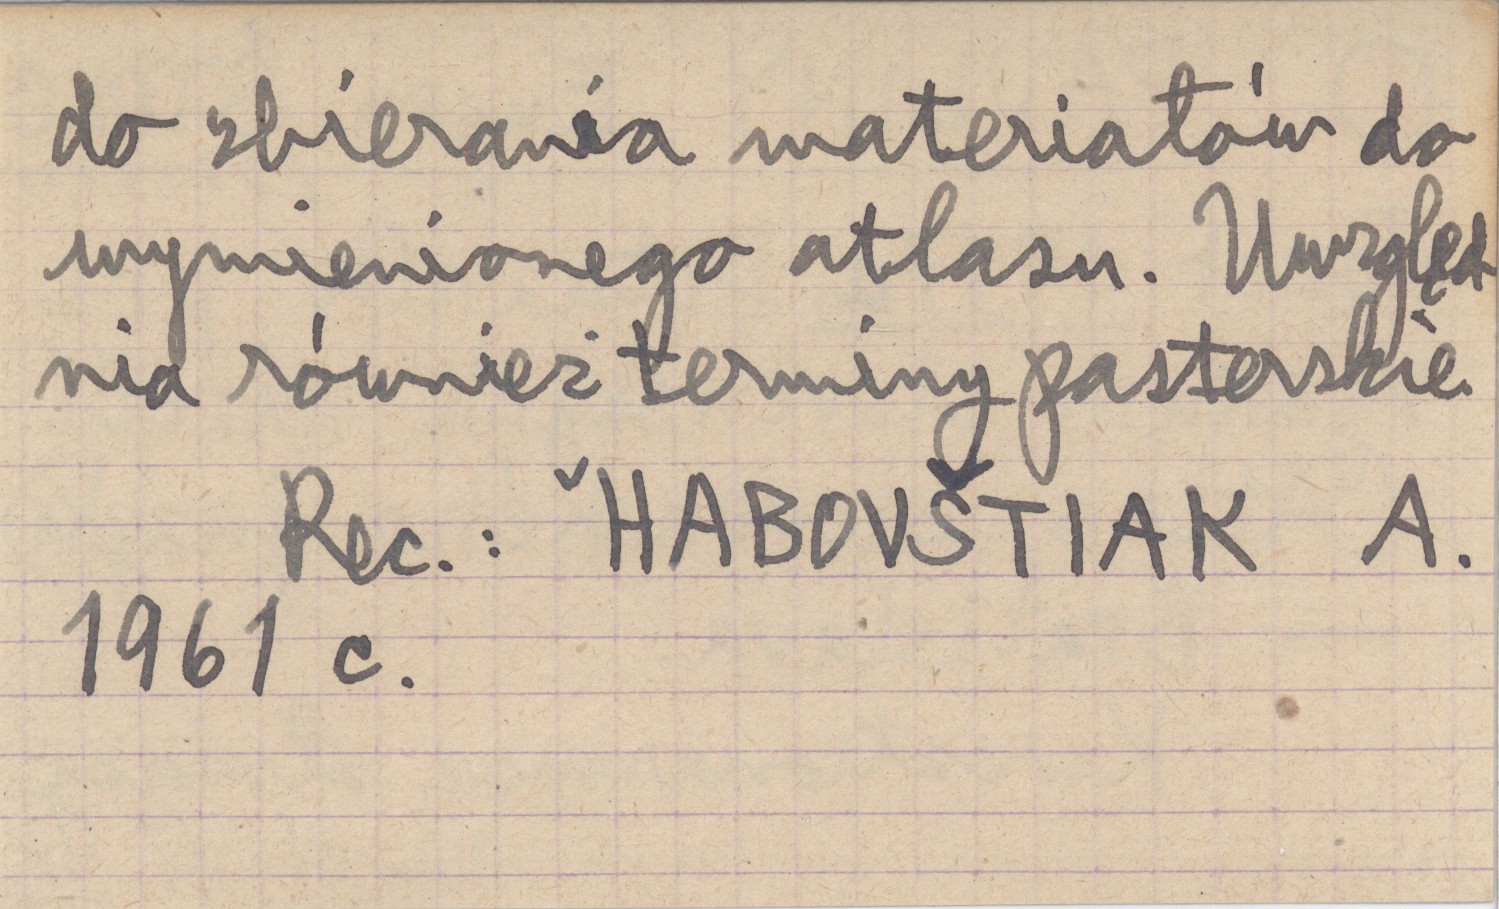 do zbierania materiałów do
wymienionego atlasu. Uwzględ
nia również terminy pasterskie.
Rec.: ˇHABOVŠTIAK A.
1961 c.